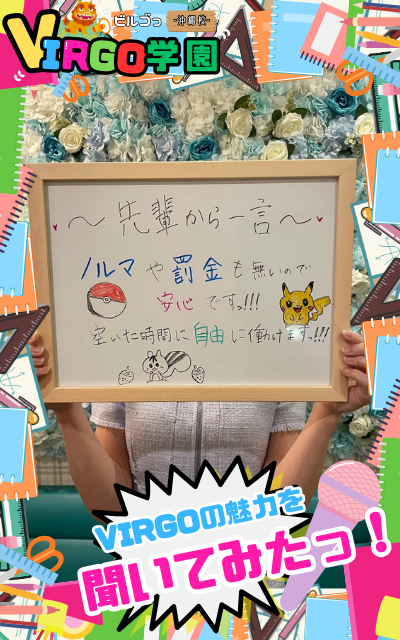 ビルゴっ -沖縄校-
VIRGO学園
～先輩から一言～
ノルマや罰金も無いので
安心ですっ!!!
空いた時間に自由に働けますっ!!!
VIRGOの魅力を
聞いてみたっ！